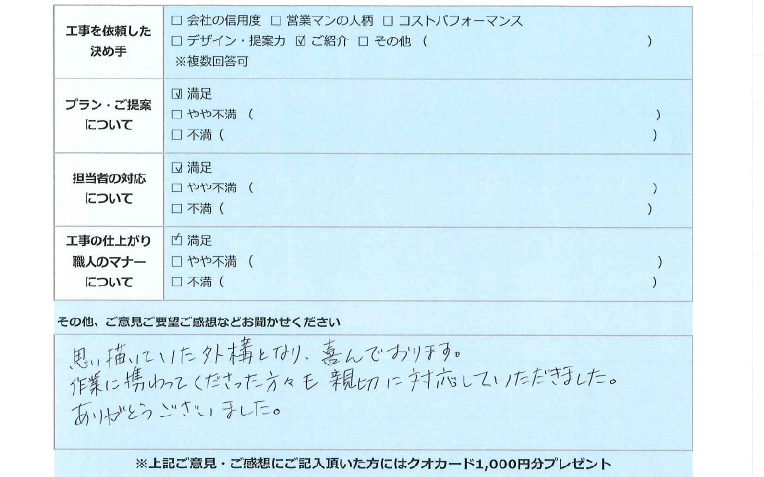 工事を依頼した
決め手
□ 会社の信用度 □ 営業マンの人柄 □ コストパフォーマンス
□ デザイン・提案力 ☑ ご紹介 □ その他 ( )
※複数回答可
プラン・ご提案
について
☑ 満足
□ やや不満 ( )
□ 不満 ( )
担当者の対応
について
☑ 満足
□ やや不満 ( )
□ 不満 ( )
工事の仕上がり
職人のマナー
について
☑ 満足
□ やや不満 ( )
□ 不満 ( )
その他、ご意見ご要望ご感想などお聞かせください
思い描いていた外構となり、喜んでおります。
作業に携わってくださった方々も親切に対応していただきました。
ありがとうございました。
※上記ご意見・ご感想にご記入頂いた方にはクオカード1,000円分プレゼント